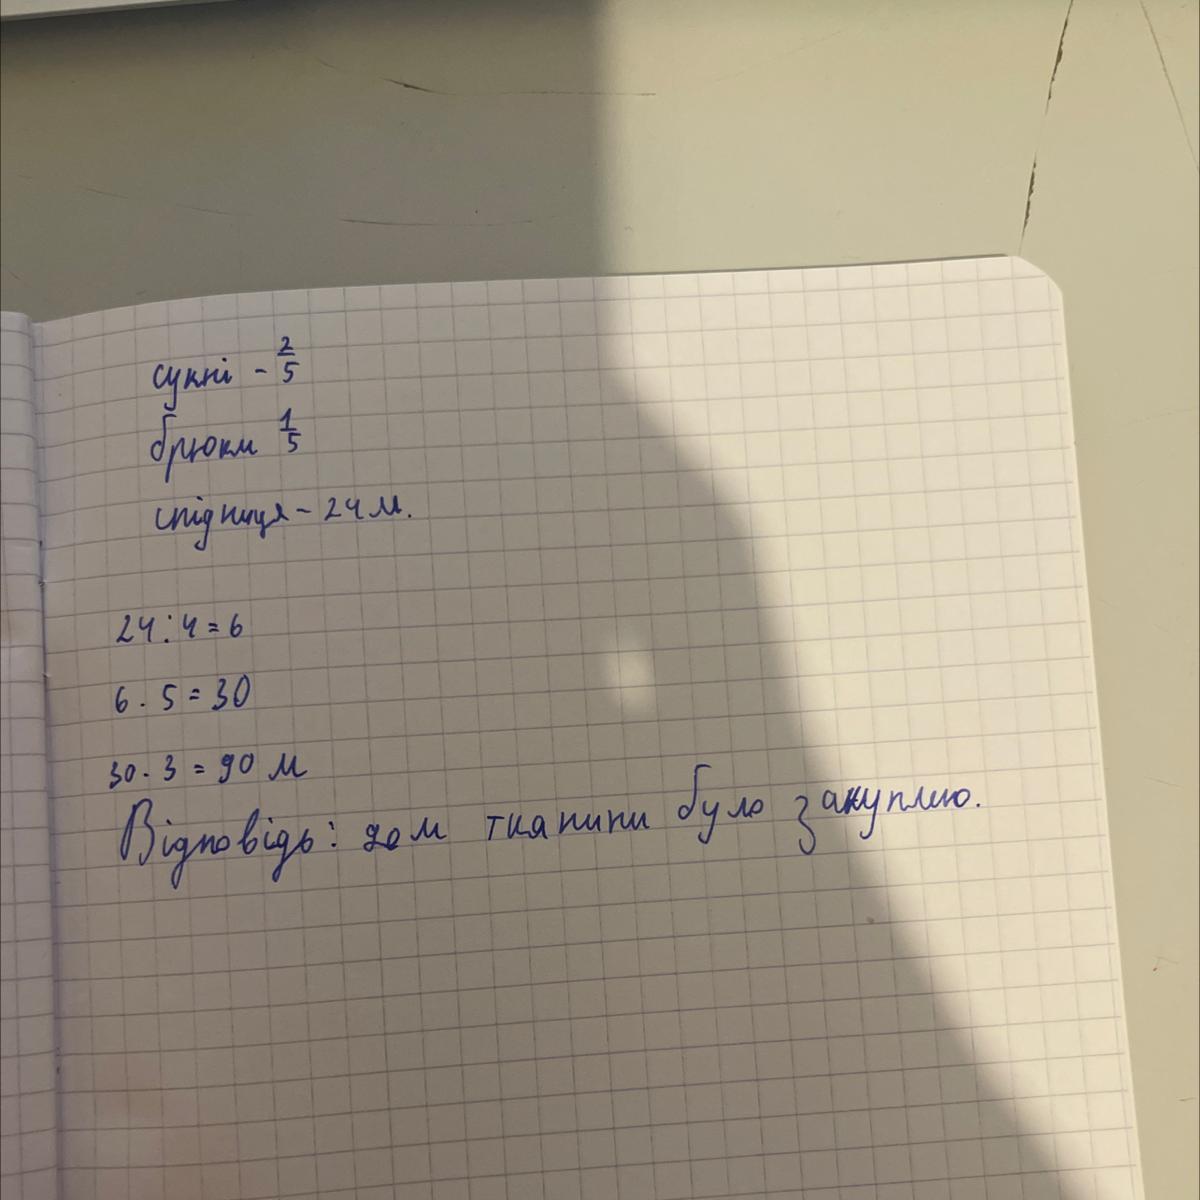 сукні - 2/5
брюки 1/5
спідниця - 24 м.
24 : 4 = 6
6 · 5 = 30
30 · 3 = 90 м
Відповідь: 90 м тканини було закуплено.